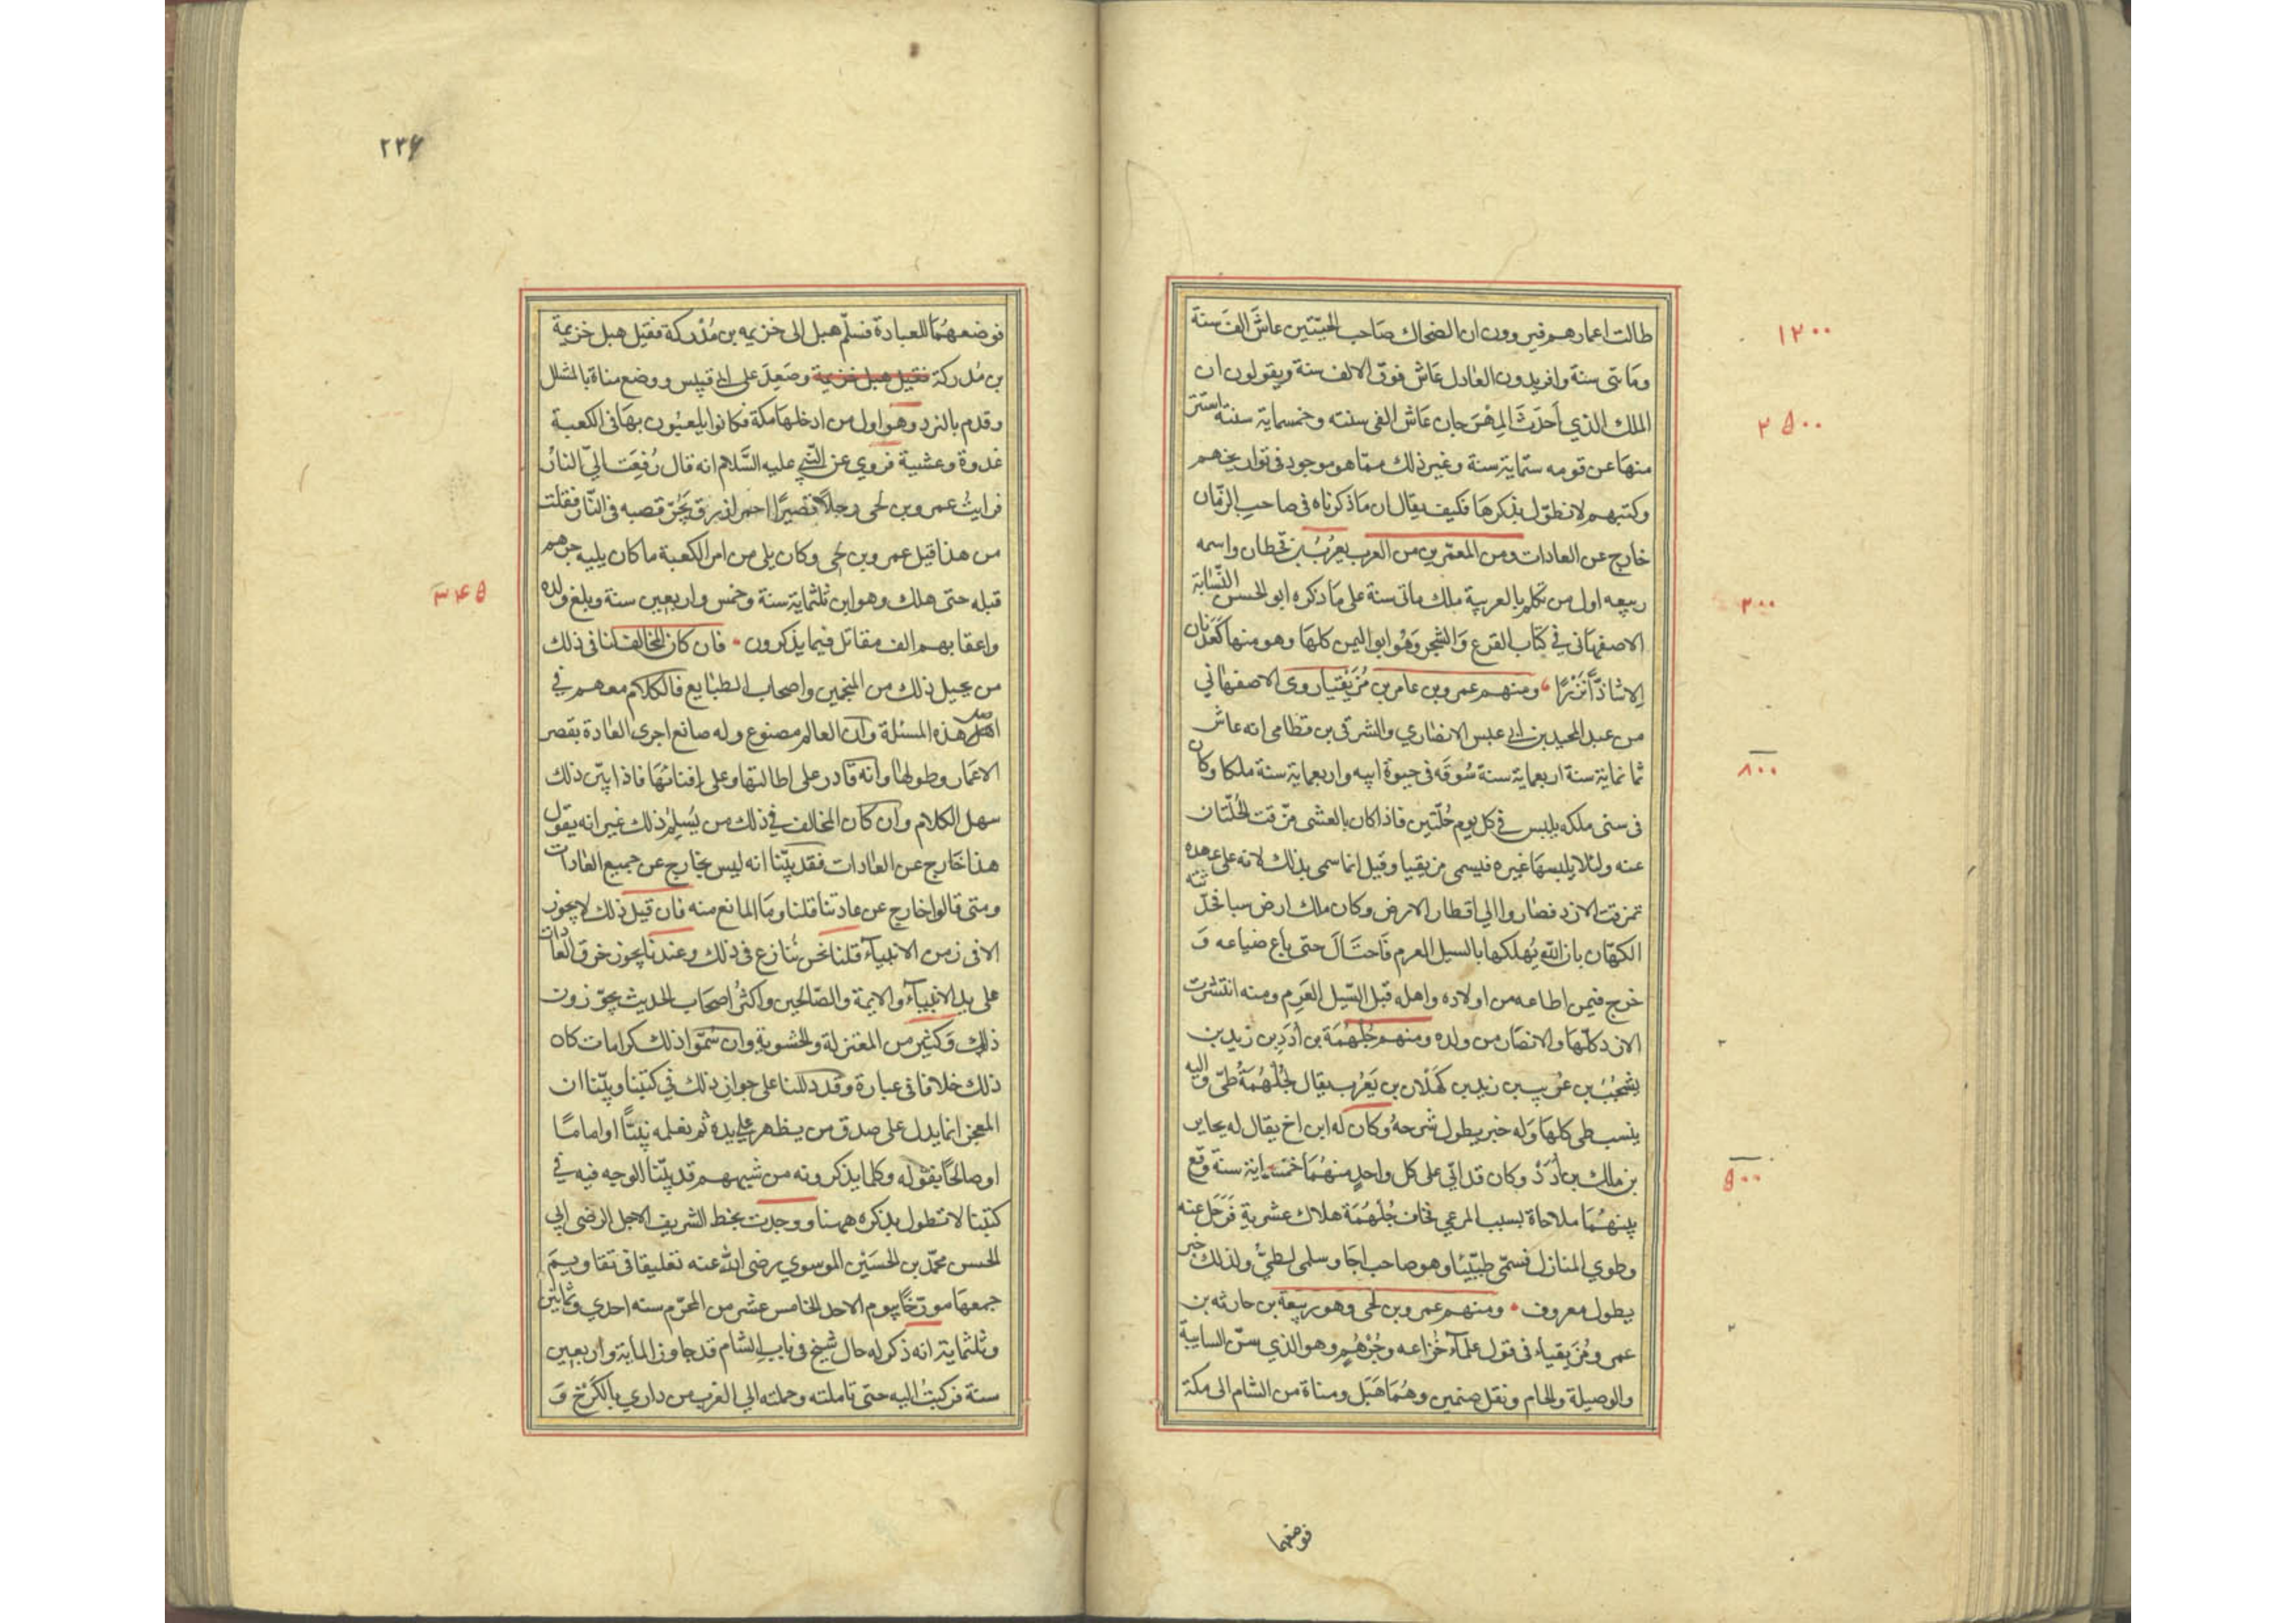 طالت اعمارهم فيروون ان الضحاك صاحب الحيّتين عاش الف سنة
ومأتى سنة وافريدون العادل عاش فوق الالف سنة ويقولون ان
الملك الذي أحدث المهرجان عاش الفى سنته وخمسماية سنة استتر
منها عن قومه ستماية سنة وغير ذلك ممّا هو موجود فى تواريخهم
وكتبهم لا نطوّل بذكرها فكيف يقال ان ما ذكرناه فى صاحب الزمّان
خارج عن العادات ومن المعمّرين من العرب يعرُبُ بن قحطان واسمه
ربيعه اول من تكلم بالعربية ملك مأتى سنة على ما ذكره ابو الحسن النسّابة
الاصفهاني في كتاب الفرع والشجر وهُو ابو اليمن كلها وهو منها كعدنان
الا شاذّاً نزرًا ومنهم عمرو بن عامر بن مُزَيْقيا روى الاصفهاني
من عبد المجيد بن ابى عبس الانصاري والشرقى بن قطامى انه عاش
ثمانماية سنة اربعماية سنة سُوقَه فى حيوة ابيه واربعماية سنة ملكا وكان
فى سنى ملكه يلبس في كل يوم حُلّتين فاذا كان بالعشى مزّقت الحُلّتان
عنه ولئلا يلبسها غيره فيسمى مزيقيا وقيل انما سمى بذلك لانه على عهده
تمزقت الازد فصاروا الى اقطار الارض وكان ملك ارض سبا فحدّثته
الكهّان بان الله يُهلكها بالسيل العرم فاحتَالَ حتى باع ضياعه وَ
خرج فيمن اطاعه من اولاده واهله قبل السّيل العَرِم ومنه انتشرت
الازد كلّها والانصار من ولده ومنهم جُلْهُمَة بن أُدَدِ بن زيد بن
يشْجُبَ بن عرُيب بن زيد بن كَهْلان بن يَعْرُب يقال لجُلْهُمَةُ طىّ واليه
ينسب طى كلها وله خبر يطول شرحهُ وكان له ابن اخ يقال له يحابر
بن مالك بن أُدَدْ وكان قد اتى على كل واحدٍ منهُمَا خمسماية سنة وقع
بينهُمَا ملاحاة بسبب المرعي فخاف جُلْهُمَة هلاك عشريةِ فرَحَل عنه
وطوي المنازل فسمّى طيّئا وهو صاحب اجَا وسلمى لطيّ ولذلك خبر
يطول معروف ومنهم عمرو بن لحى وهو ربيعة بن حارثه بن
عمرو مُزَيقياء فى قول علمآء خُزاعه وجُرْهُمٍ وهو الذي سنّ السايبة
والوصيلة والحام ونقل صنمين وهُمَا هَبَل ومناة من الشام الى مكة
فوضعهما
١٢٠٠
٢٥٠٠
٢٠٠
٨٠٠
٥٠٠
٢٣٤
فوضعهُمَا للعبادة فسلّم هبل الى خزيمه بن مُدْركة فقيل هبل خزيمة
بن مُدركة فقيل هبل خزيمة وصَعِدَ على ابى قبيس ووضع مناة بالمشلل
وقدم بالنرد وهو اول من ادخلها مكة فكانوا يلعبُون بها فى الكعبة
غدوة وعشية فروي عن النّبي عليه السّلام انه قال رُفِعَت اليّ النارُ
فرايتُ عمرو بن لحى رجلاً قصيرًا احمر ازرق يَجُرّ قصبه فى النّار فقلت
من هذا قيل عمرو بن لحى وكان يلى من امر الكعبة ما كان يليه جرهم
قبله حتى هلك وهو ابن ثلثماية سنة وخمس واربعين سنة وبلغ ولده
واعقابهم الف مقاتل فيما يذكرون فان كان المخالف لنا فى ذلك
من يحيل ذلك من المنجمين واصحاب الطبايع فالكلام معهم في
اصل هذه المسئلة وان العالم مصنوع وله صانع اجرى العادة بقصر
الاعمار وطولها وانه قادر على اطالتها وعلى إفنائها فاذا بيّن ذلك
سهل الكلام وان كان المخالف في ذلك من يُسَلِمُ ذلك غير انه يقول
هذا خارج عن العادات فقد بيّنا انه ليس بخارج عن جميع العادات
ومتى قالوا خارج عن عادتنا قلنا وما المانع منه فان قيل ذلك لا يجوز
الا فى زمن الانبيآء قلنا نحن نُنازع فى ذلك وعندنا يجوز خرق العادات
على يد الانبيآء والايمة والصّالحين واكثرُ اصحاب الحديث يجوّزون
ذلك وَكثير من المعتزلة والحشويةِ وان سَمّوا ذلك كرامات كان
ذلك خلافا فى عبارة وقد دللنا على جواز ذلك في كتبنا وبيّنا ان
المعجز انما يدل على صدق من يظهر على يده ثم نعلمه نبيّاً او امامًا
او صالحًا بقوله وكلما يذكرونه من شبههم قد بيّنا الوجه فيه في
كتبنا لا نطول بذكره ههنا ووجدت بخط الشريف الاجل الرضى ابي
الحسن محمّد بن الحسَيْن الموسوي رضى الله عنه تعليقا فى تقاويمَ
جمعها مورّخًا بيوم الاحد الخامس عشر من المحرّم سنه احدي وثمانين
وثلثماية انه ذكر له حال شيخ فى باب الشام قد جاوز الماية واربعين
سنة فركبتُ اليه حتى تاملته وحملته الي القرب من داري بالكَرْخ وَ
٣٤٥